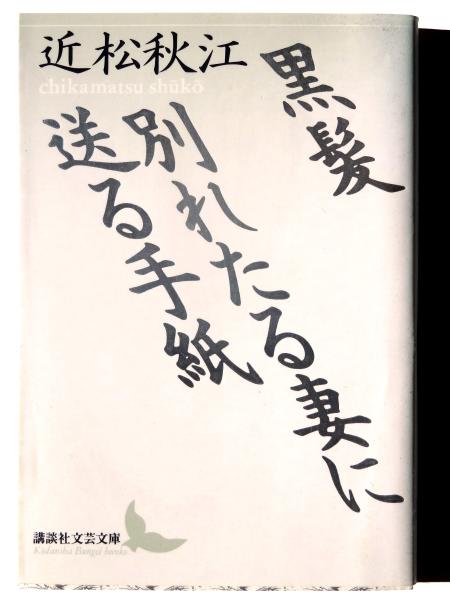 近松秋江
chikamatsu shūkō
黒髪
別れたる妻に
送る手紙
講談社文芸文庫
Kodansha Bungei bunko